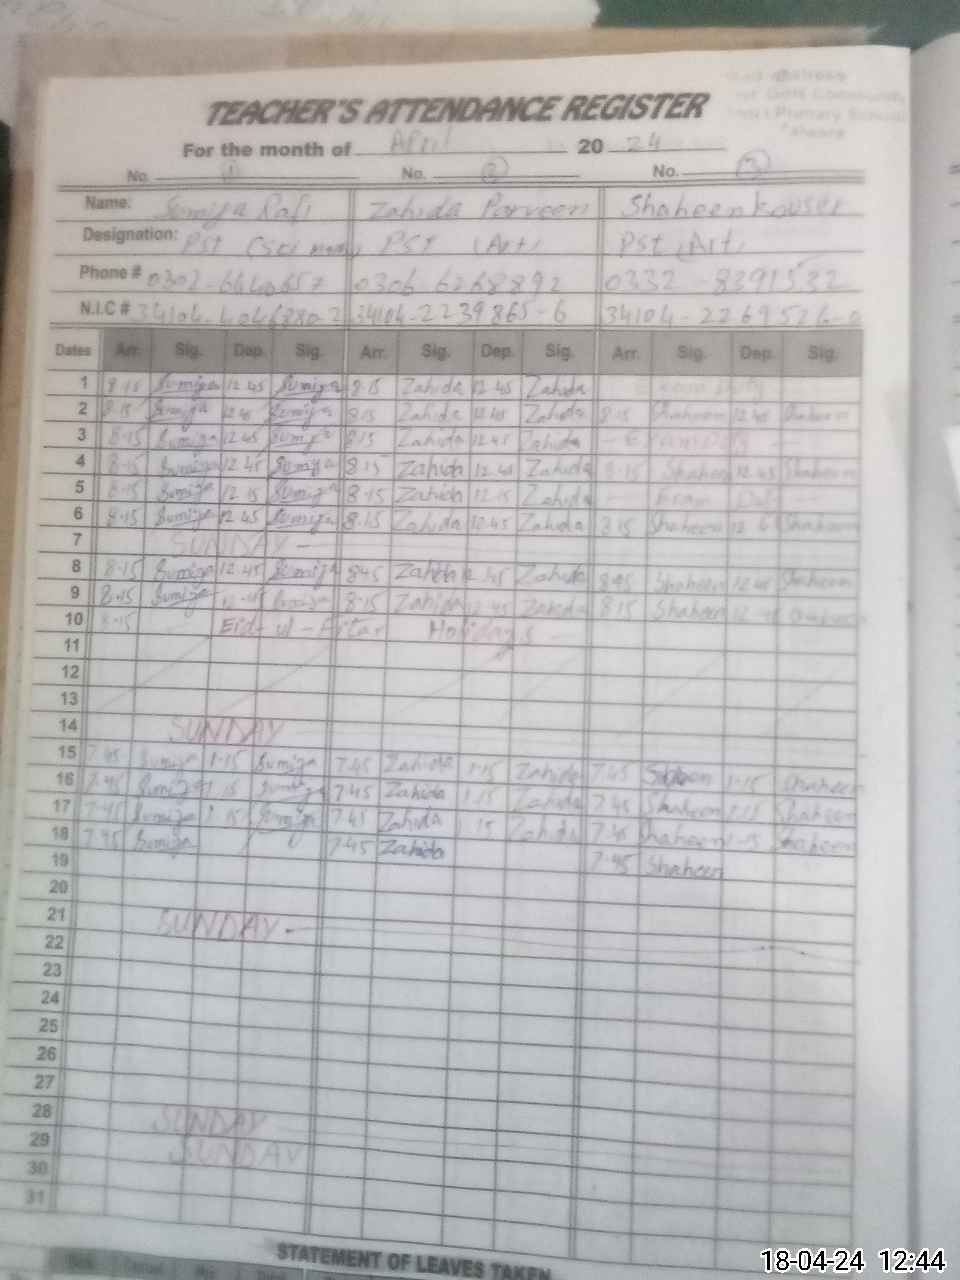 TEACHER'S ATTENDANCE REGISTER
For the month of April 20 24
No. 1 No. 2 No. 3
Name: Sumija Rafi Zahida Parveen Shaheen kouser
Designation: PST PST (Art) PST (Art)
Phone # 0306-6268892 0332-8391532
N.I.C # 34104-2239865-6
Dates Arr. Sig. Dep. Sig. Arr. Sig. Dep. Sig. Arr. Sig. Dep. Sig.
1 8-15 Sumija 12.45 Sumija 8-15 Zahida 12.45 Zahida Exam Duty
2 8-15 Sumija 12.45 Sumija 8-15 Zahida 12.45 Zahida 8-15 Shaheen 12.45 Shaheen
3 8-15 Sumija 12.45 Sumija 8-15 Zahida 12.45 Zahida Exam Duty
4 8-15 Sumija 12.45 Sumija 8-15 Zahida 12.45 Zahida 8-15 Shaheen 12.45 Shaheen
5 8-15 Sumija 12.15 Sumija 8-15 Zahida 12.15 Zahida Exam Duty
6 8-15 Sumija 12.45 Sumija 8.15 Zahida 12.45 Zahida Shaheen Shaheen
7 SUNDAY
8 8-15 Sumija 12.45 Sumija 8-45 Zahida Zahida Shaheen 12.45 Shaheen
9 8-15 Sumija Sumija 8-15 Zahida 12.45 Zahida 8-15 Shaheen
10 8-15 Eid-ul-Fitar Holidays
11
12
13
14 SUNDAY
15 7.45 Sumija 1-15 Sumija 7.45 Zahida 1-15 Zahida 7.45 Shaheen 1-15 Shaheen
16 7.45 Sumija 1.15 Sumija 7.45 Zahida 1.15 Zahida 7.45 Shaheen 1-15 Shaheen
17 7.45 Sumija 1.15 Sumija 7.45 Zahida 1.15 Zahida 7.45 Shaheen 1-15 Shaheen
18 7.45 Sumija 7.45 Zahida 7.45 Shaheen
19
20
21 SUNDAY
22
23
24
25
26
27
28 SUNDAY
29 SUNDAY
30
31
STATEMENT OF LEAVES TAKEN
18-04-24 12:44